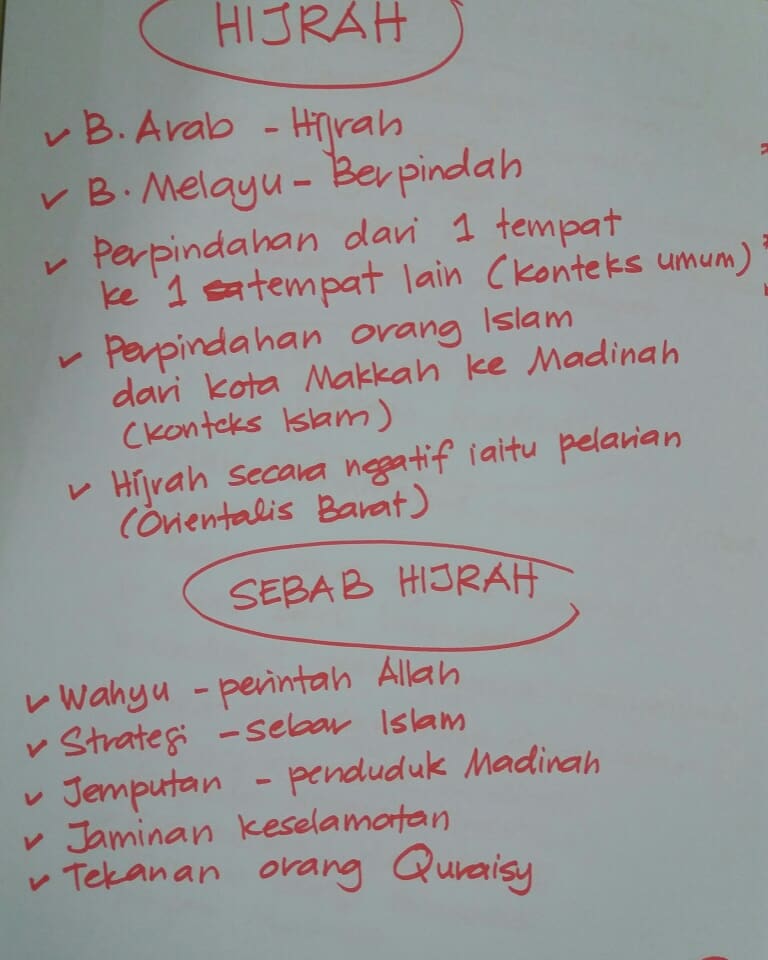 HIJRAH
✓ B. Arab - Hijrah
✓ B. Melayu - Berpindah
✓ Perpindahan dari 1 tempat
ke 1 tempat lain (konteks umum)
✓ Perpindahan orang Islam
dari kota Makkah ke Madinah
(konteks Islam)
✓ Hijrah secara negatif iaitu pelarian
(Orientalis Barat)
SEBAB HIJRAH
✓ Wahyu - perintah Allah
✓ Strategi - sebar Islam
✓ Jemputan - penduduk Madinah
✓ Jaminan keselamatan
✓ Tekanan orang Quraisy